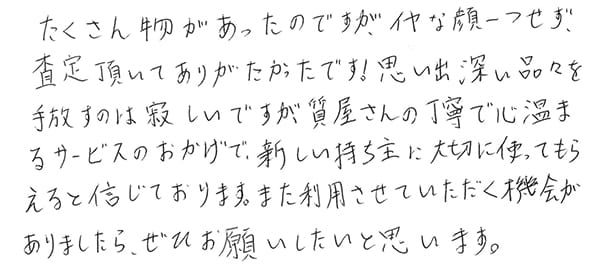 たくさん物があったのですが、イヤな顔一つせず、
査定頂いてありがたかったです!思い出深い品々を
手放すのは寂しいですが質屋さんの丁寧で心温ま
るサービスのおかげで、新しい持ち主に大切に使ってもら
えると信じております。また利用させていただく機会が
ありましたら、ぜひお願いしたいと思います。